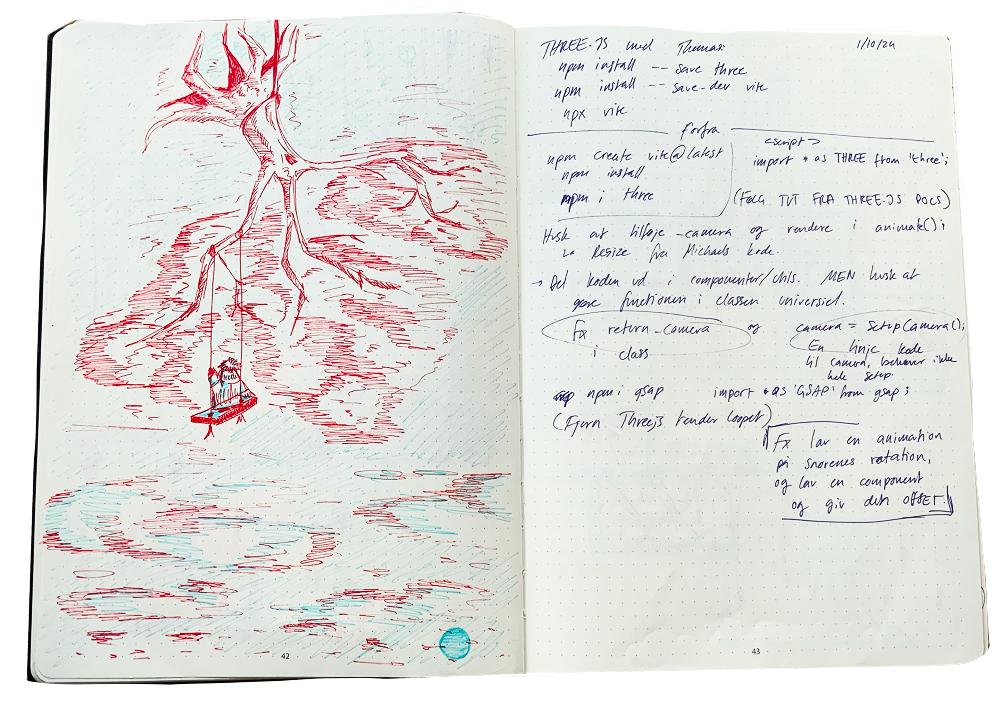 THREE.JS med Thomas 1/10/24
npm install -- save three
npm install -- save-dev vite
npx vite
forfra
npm create vite@latest
npm install
npm i three
<script>
import * as THREE from 'three';
(FØLG TUT FRA THREE.JS DOCS)
Husk at tilføje _camera og rendere i animate();
Resize fra Michaels kode.
→ Del koden ud i componenter/utils. MEN husk at
gøre functionen i classen universiel.
Fx return _camera
i class
og
camera = setupCamera();
En linje kode
til camera, behøver ikke
hele setup.
npm i gsap import * as 'GSAP' from gsap;
(Fjern Threejs render loopet)
Fx lav en animation
på snorenes rotation,
og lav en component
og giv den OFFSET.
42
43